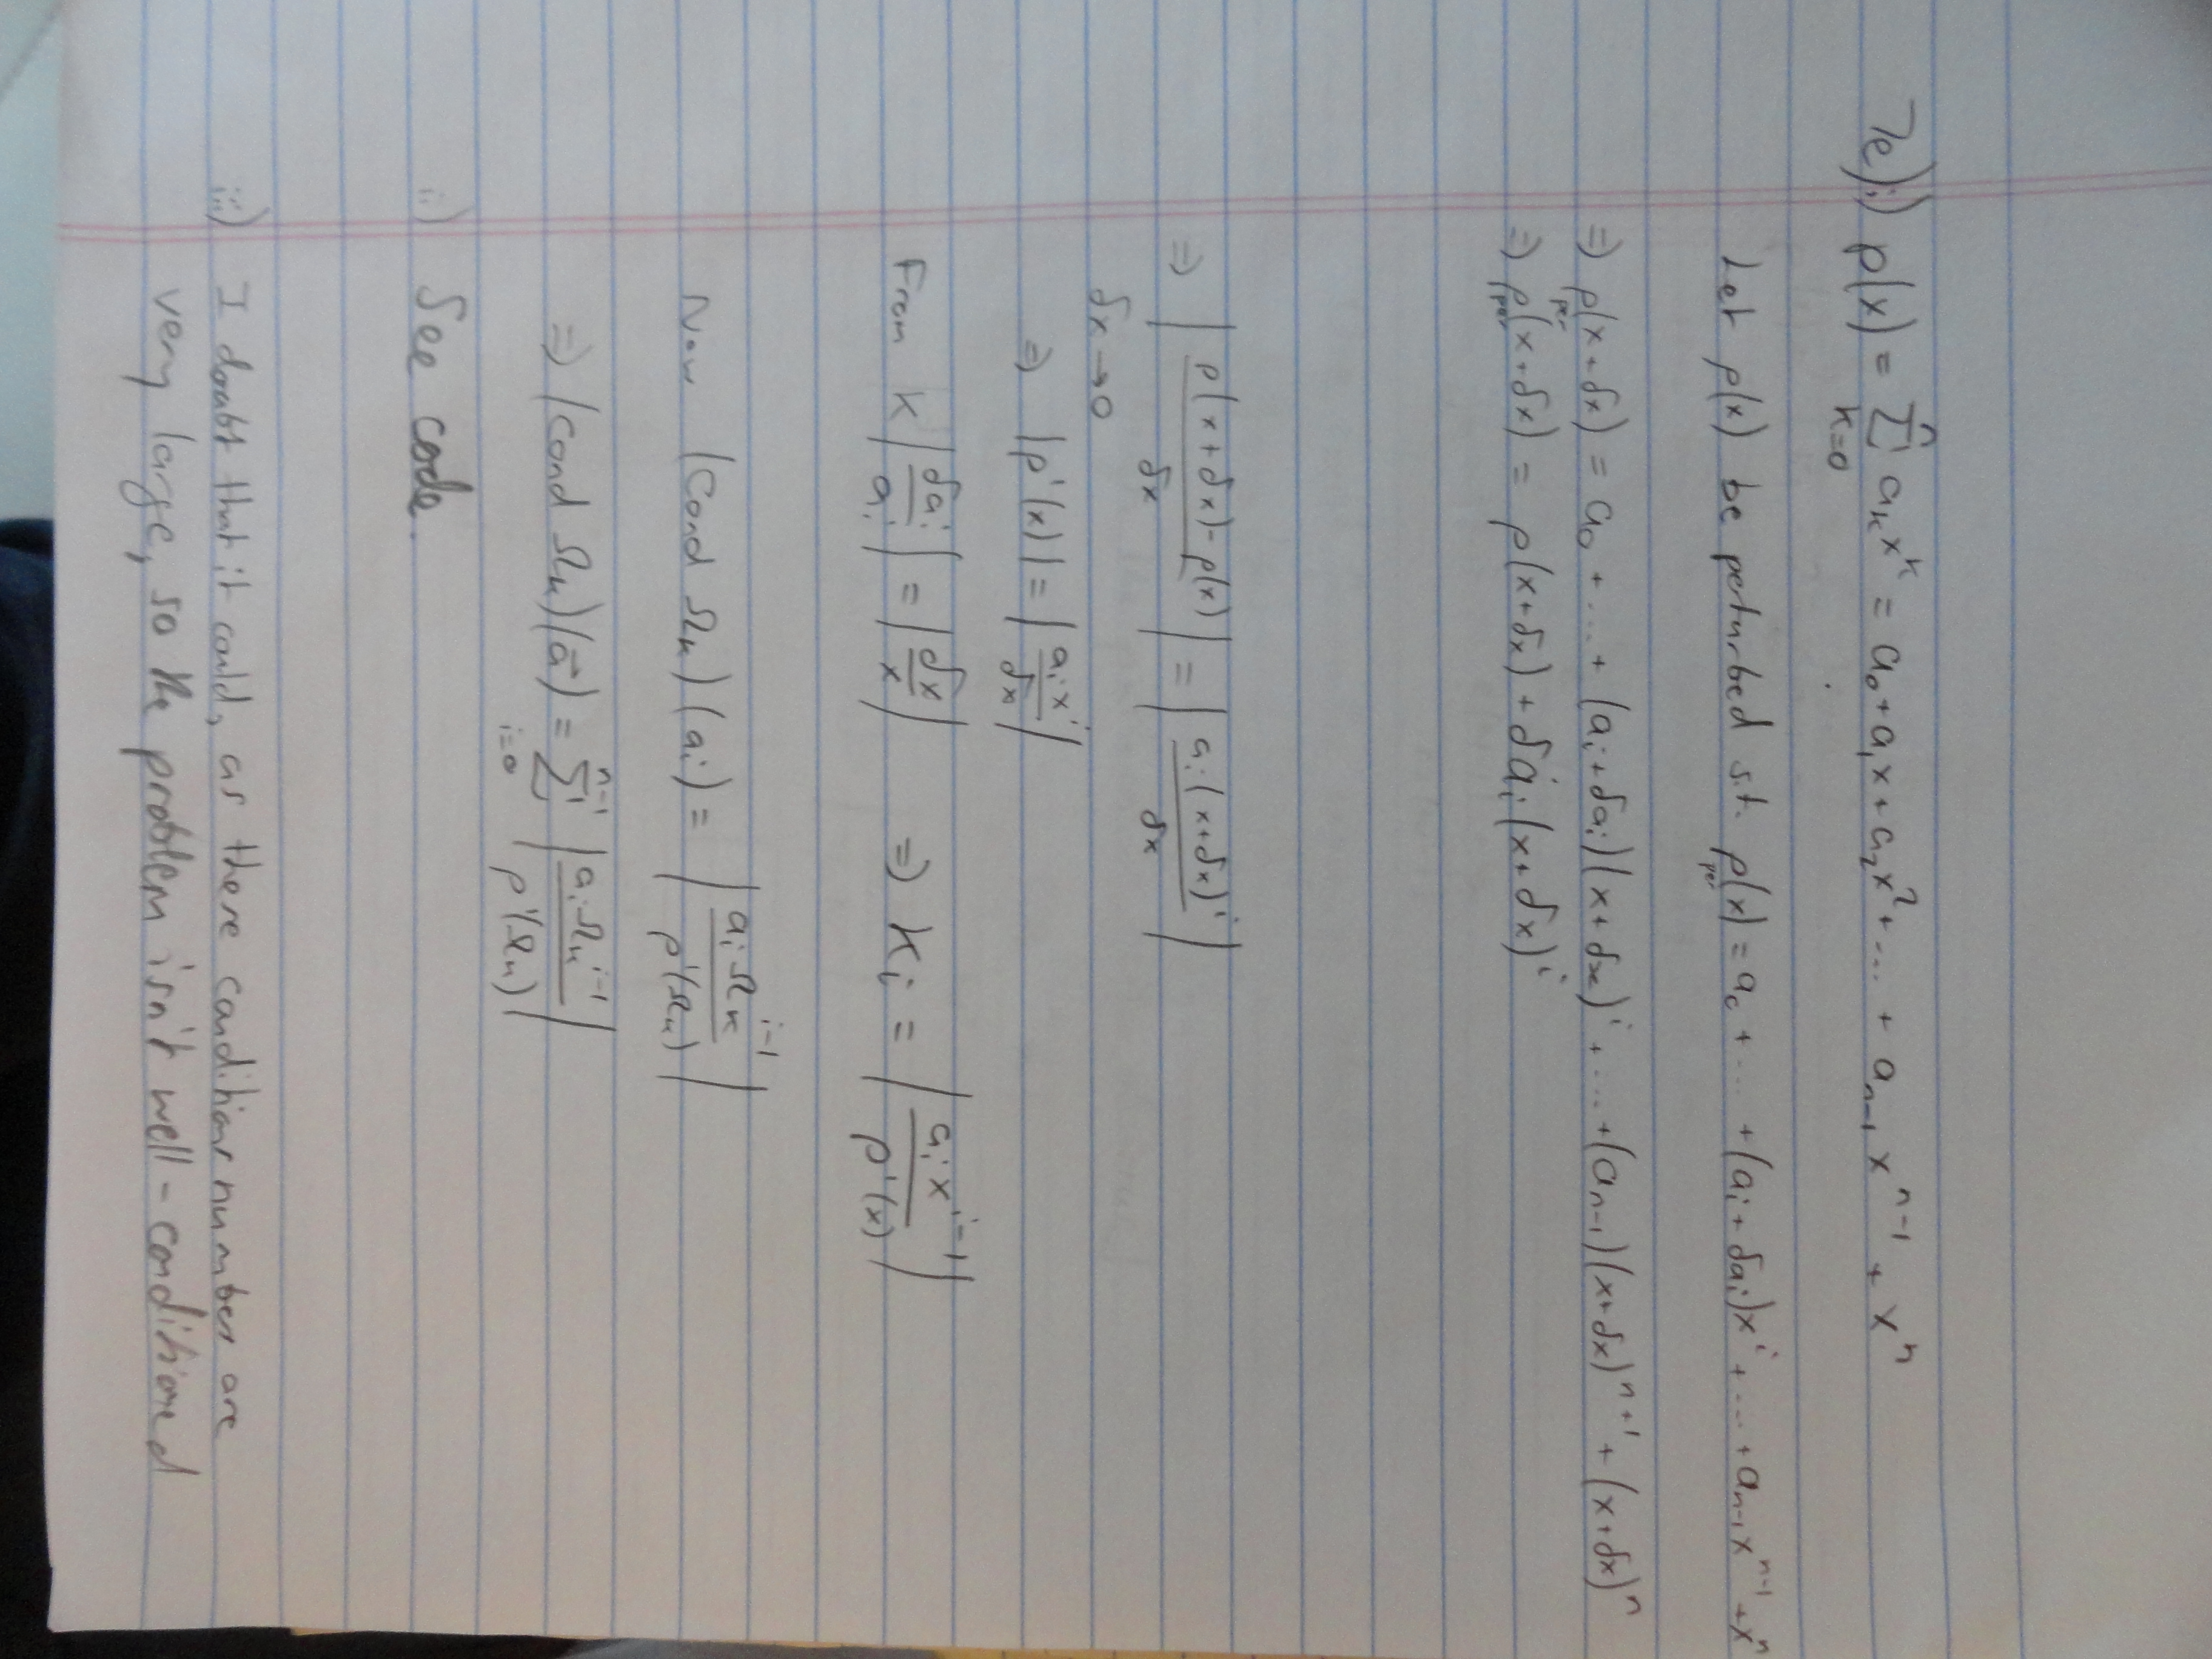 7e)i) p(x) = Σ_{k=0}^{n} a_k x^k = a_0 + a_1 x + a_2 x^2 + ... + a_{n-1} x^{n-1} + x^n
Let p(x) be perturbed s.t. p_{per}(x) = a_0 + ... + (a_i + δa_i)x^i + ... + a_{n-1} x^{n-1} + x^n
⇒ p_{per}(x + δx) = a_0 + ... + (a_i + δa_i)(x + δx)^i + ... + (a_{n-1})(x + δx)^{n+1} + (x + δx)^n
⇒ p_{per}(x + δx) = p(x + δx) + δa_i (x + δx)^i
⇒ | (p(x + δx) - p(x)) / δx | = | a_i (x + δx)^i / δx |
δx → 0
⇒ |p'(x)| = | a_i x^i / δx |
From K | δa_i / a_i | = | δx / x | ⇒ K_i = | a_i x^{i-1} / p'(x) |
Now (Cond Ω_k)(a_i) = | a_i Ω_k^{i-1} / p'(Ω_k) |
⇒ (Cond Ω_k)(a⃗) = Σ_{i=0}^{n-1} | a_i Ω_k^{i-1} / p'(Ω_k) |
ii) See code.
iii) I doubt that it could, as there condition numbers are
very large, so the problem isn't well-conditioned